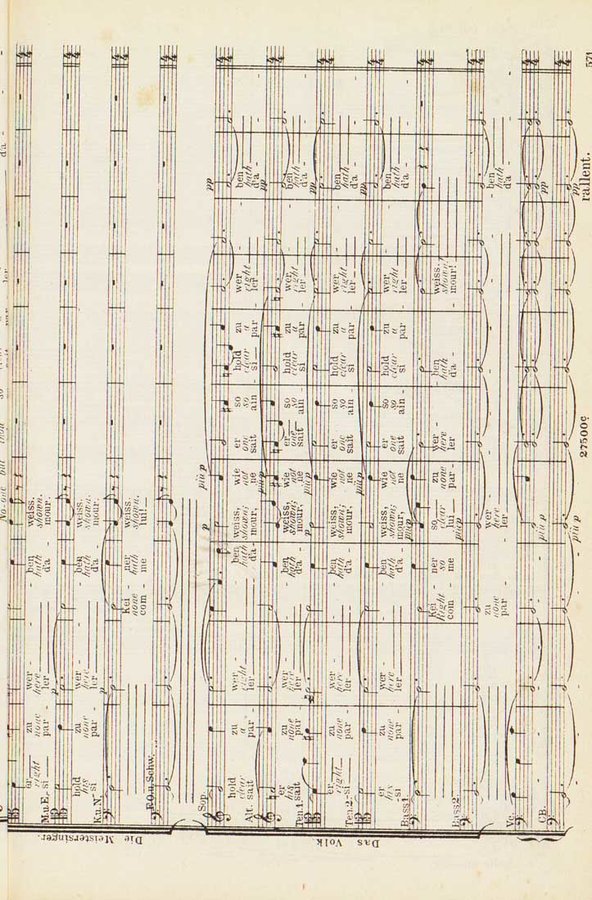 571
M.u.E.
er zu wer - ben weiss.
right none here hath shown.
si par - ler d'a - mour.
Ku.N.
hold zu wer - ben weiss.
his none here hath shown.
si par - ler d'a - mour.
F.O.u.Schw.
Kei - ner weiss.
none hath shown.
com - me lui!
Die Meistersinger.
Sop.
p più p pp
hold zu wer - ben weiss, wie er so hold zu wer - ben
clear a right hath shown, not one so clear a right hath
sait par - ler d'a - mour, ne sait ain - si par - ler d'a -
Alt.
più p pp
er zu wer - ben weiss, wie er so hold zu wer - ben
his none here hath shown, not one so clear a right hath
sait par - ler d'a - mour, ne sait ain - si par - ler d'a -
Ten.1
più p pp
er zu wer - ben weiss, wie er so hold zu wer - ben
right none here hath shown, not one so clear a right hath
si par - ler d'a - mour, ne sait ain - si par - ler d'a -
Ten.2
più p pp
er zu wer - ben weiss, wie er so hold zu wer - ben
his none here hath shown, not one so clear a right hath
si par - ler d'a - mour, ne sait ain - si par - ler d'a -
Bass1
più p
Kei - ner so zu wer - ben weiss.
Right so clear none here hath shown!
com - me lui, par - ler d'a - mour!
Bass2
zu wer - ben
none here hath
par ler d'a
Das Volk
Vc.
più p pp
CB.
più p pp
rallent.
27500c